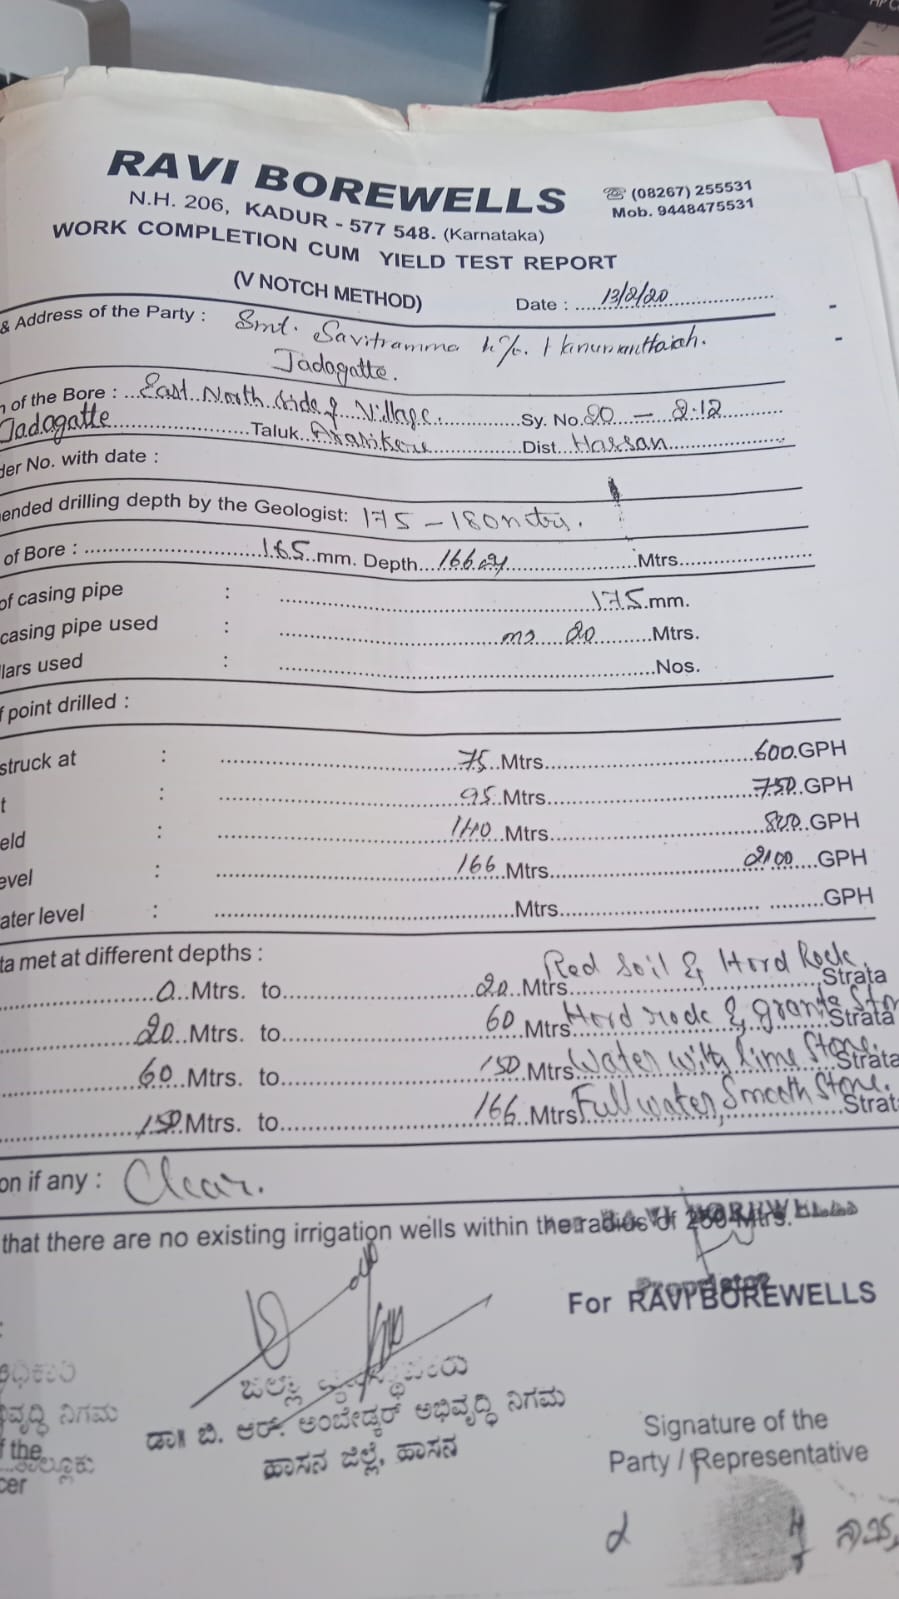 RAVI BOREWELLS
N.H. 206, KADUR - 577 548. (Karnataka)
☏ (08267) 255531
Mob. 9448475531
WORK COMPLETION CUM YIELD TEST REPORT
(V NOTCH METHOD)
Date : 13/2/20
& Address of the Party : Smt. Savitramma w/o. Hanumanthaiah.
Jadagatte.
of the Bore : East North Side of Village. Sy. No. 20 - 2.12
Jadagatte Taluk Arasikere Dist. Hassan
der No. with date :
ended drilling depth by the Geologist: 175 - 180 mtrs.
of Bore : 165 mm. Depth 166 Mtrs
of casing pipe : 175 mm.
casing pipe used : ms 20 Mtrs.
llars used : Nos.
f point drilled :
struck at : 75 Mtrs 600 GPH
t : 95 Mtrs 750 GPH
eld : 140 Mtrs 800 GPH
evel : 166 Mtrs 2100 GPH
ater level : Mtrs GPH
ta met at different depths :
0 Mtrs. to 20 Mtrs Red Soil & Hord Rock Strata
20 Mtrs. to 60 Mtrs Hord rock & Strata
60 Mtrs. to 150 Mtrs Water with lime Stone. Strata
150 Mtrs. to 166 Mtrs Full water Smooth Stone. Strat
on if any : Clear.
that there are no existing irrigation wells within the radius of 250 Mtrs.
For RAVI BOREWELLS
Proprietor
ಜಿಲ್ಲಾ ವ್ಯವಸ್ಥಾಪಕರು
ಡಾ|| ಬಿ. ಆರ್. ಅಂಬೇಡ್ಕರ್ ಅಭಿವೃದ್ಧಿ ನಿಗಮ
ಹಾಸನ ಜಿಲ್ಲೆ, ಹಾಸನ
ವೃದ್ಧಿ ನಿಗಮ
f the
cer
Signature of the
Party / Representative